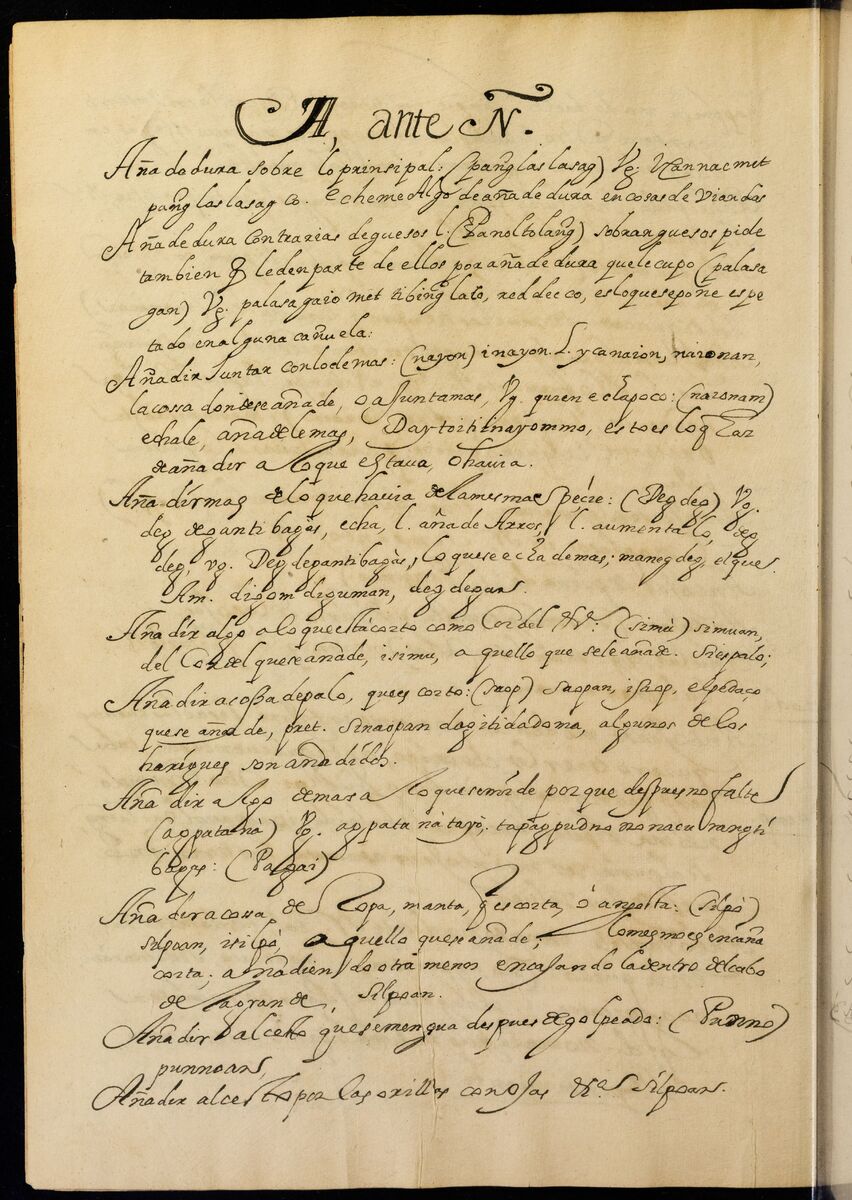 A, ante Ñ.
Añadodura sobre lo principal: (pang̃laslasag) Vg. Yzannacmet
pang̃laslasag co. Echeme Algo de añadedura en cosas de viandas
Añadedura contrarias deguesos l. (Panoltolang̃) sobran guesos pide
tambien q̃ le den parte de ellos por añadedura quele cupo (palasa
gan) Vg. palasagaio met ti bing̃lato, reddecco, es lo que se pone espe
tado en alguna cañuela:
Añadir Juntar con lo demas: (nayon) inayon. L. ycanaion, naionan,
la cossa donde se añade, o aJuntamas, Vg. quien echa poco: (naionam)
echale, añadele mas, Daytoiti inayommo, esto es lo q̃
de añadir a lo que estava, o havia.
Añadir mas de lo que havia de la mesma espécie: (Deg deg) Vg.
deg deg anti bagàs, echa, l. añade Arros, l. aumenta lo, deg
deg, vg. Deg degantibagàs, lo que se echa de mas; maneg deg, el que.
Am. digom diguman, deg degans.
Añadir algo a lo que està corto como Cordel &ra. (simù) simuan,
del Cordel que se añade, isimu, a quello que sele añade. Si es palo;
Añadir a cossa de palo, que es corto: (saop) saopan, isaop, el pedaço
que se añade, pret. sinaopan dagitidadoma, algunos de los
harigues son añadidos.
Añadir algo demas a lo que se mide por que despues no falte
(agpatanà) Vg. agpatanà tayò, tapag̃pudno nonacurang ti
bagàs: (Pasgai)
Añadir a cossa de Ropa, manta, q̃ es corta, ó angosta: (silpò)
silpoan, isilpò, a quello que se añade, lo mesmo es en caña
corta, añadiendo otra menos encasando la dentro del cabo
de la grande, silpoan.
Añadir al cesto que se mengua despues de golpeado: (Punno)
punnoans,
Añadir al cesto por las orillas con oJas &ra. silpoans.